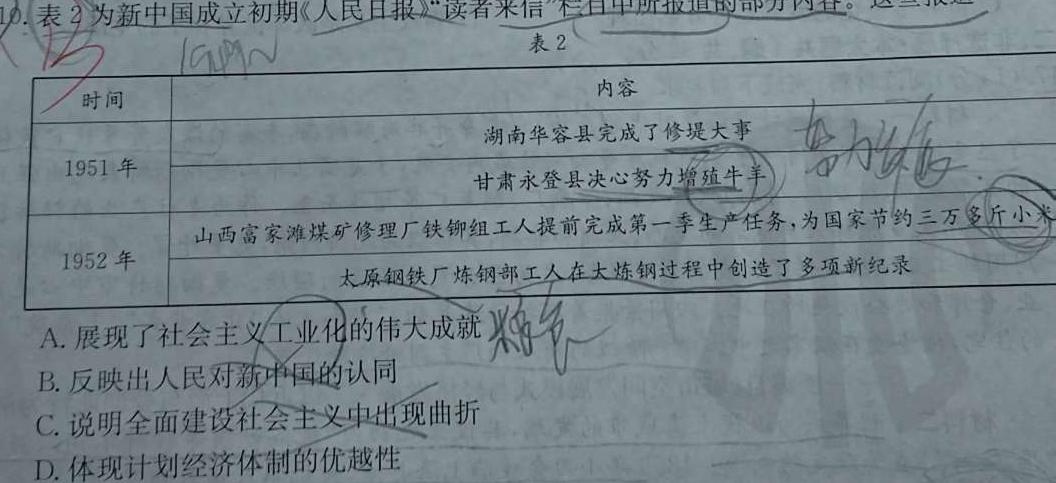 10. 表 2 为新中国成立初期《人民日报》“读者来信”栏目中所报道的部分内容。这些报道
表 2
时间 内容
1951 年
湖南华容县完成了修堤大事
甘肃永登县决心努力增殖牛羊
1952 年
山西富家滩煤矿修理厂铁铆组工人提前完成第一季生产任务,为国家节约三万多斤小米
太原钢铁厂炼钢部工人在大炼钢过程中创造了多项新纪录
A. 展现了社会主义工业化的伟大成就
B. 反映出人民对新中国的认同
C. 说明全面建设社会主义中出现曲折
D. 体现计划经济体制的优越性